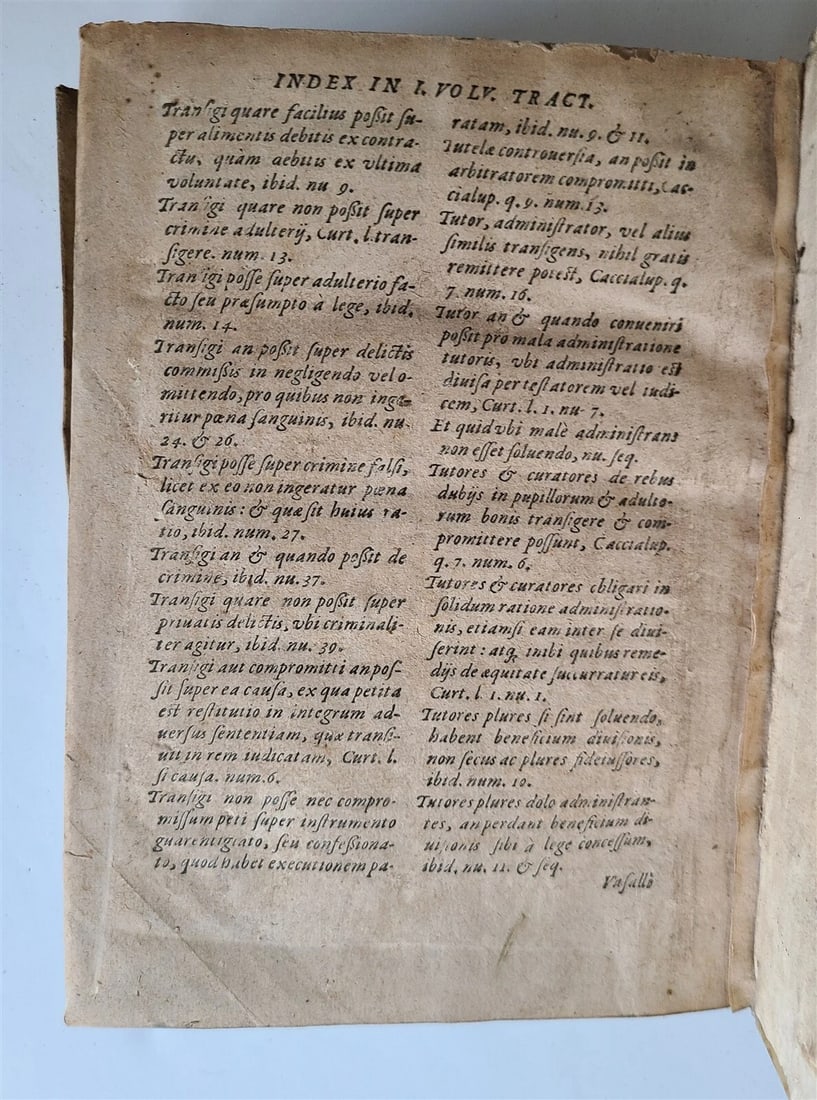 INDEX IN I. VOLV. TRACT.
Transigi quare facilius poßit su-
per alimentis debitis ex contra-
ctu, quàm debitis ex vltima
voluntate, ibid. nu 9.
Transigi quare non poßit super
crimine adulterij, Curt. l. tran-
sigere. num. 13.
Transigi posse super adulterio fa-
cto seu præsumpto à lege, ibid.
num. 14.
Transigi an poßit super delictis
commißis in negligendo vel o-
mittendo, pro quibus non inge-
ritur pœna sanguinis, ibid. nu.
24. & 26.
Transigi posse super crimine falsi,
licet ex eo non ingeratur pœna
sanguinis: & quæ sit huius ra-
tio, ibid. num. 27.
Transigi an & quando poßit de
crimine, ibid. nu. 37.
Transigi quare non poßit super
priuatis delictis, vbi criminali-
ter agitur, ibid. nu. 39.
Transigi aut compromitti an pos-
sit super ea causa, ex qua petita
est restitutio in integrum ad-
uersus sententiam, quæ transi-
uit in rem iudicatam, Curt. l.
si causa. num. 6.
Transigi non posse nec compro-
missum peti super instrumento
guarentigiato, seu confessiona-
to, quod habet executionem pa-
ratam, ibid. nu. 9. & 11.
Tutelæ controuersia, an poßit in
arbitratorem compromitti, Cac-
cialup. q. 9. num. 13.
Tutor, administrator, vel alius
similis transigens, nihil gratis
remittere potest, Caccialup. q.
7. num. 16.
Tutor an & quando conueniri
poßit pro mala administratione
tutoris, vbi administratio est
diuisa per testatorem vel iudi-
cem, Curt. l. 1. nu. 7.
Et quid vbi malè administrans
non esset soluendo, nu. seq.
Tutores & curatores de rebus
dubijs in pupillorum & adulto-
rum bonis transigere & com-
promittere possunt, Caccialup.
q. 7. num. 6.
Tutores & curatores obligari in
solidum ratione administratio-
nis, etiamsi eam inter se diui-
serint: atq; inibi quibus reme-
dijs de æquitate succurratur eis,
Curt. l. 1. nu. 1.
Tutores plures si sint soluendo,
habent beneficium diuisionis,
non secus ac plures fideiussores,
ibid. num. 10.
Tutores plures dolo administran-
tes, an perdant beneficium di-
uisionis sibi à lege concessum,
ibid. nu. 11. & seq.
Vasallò